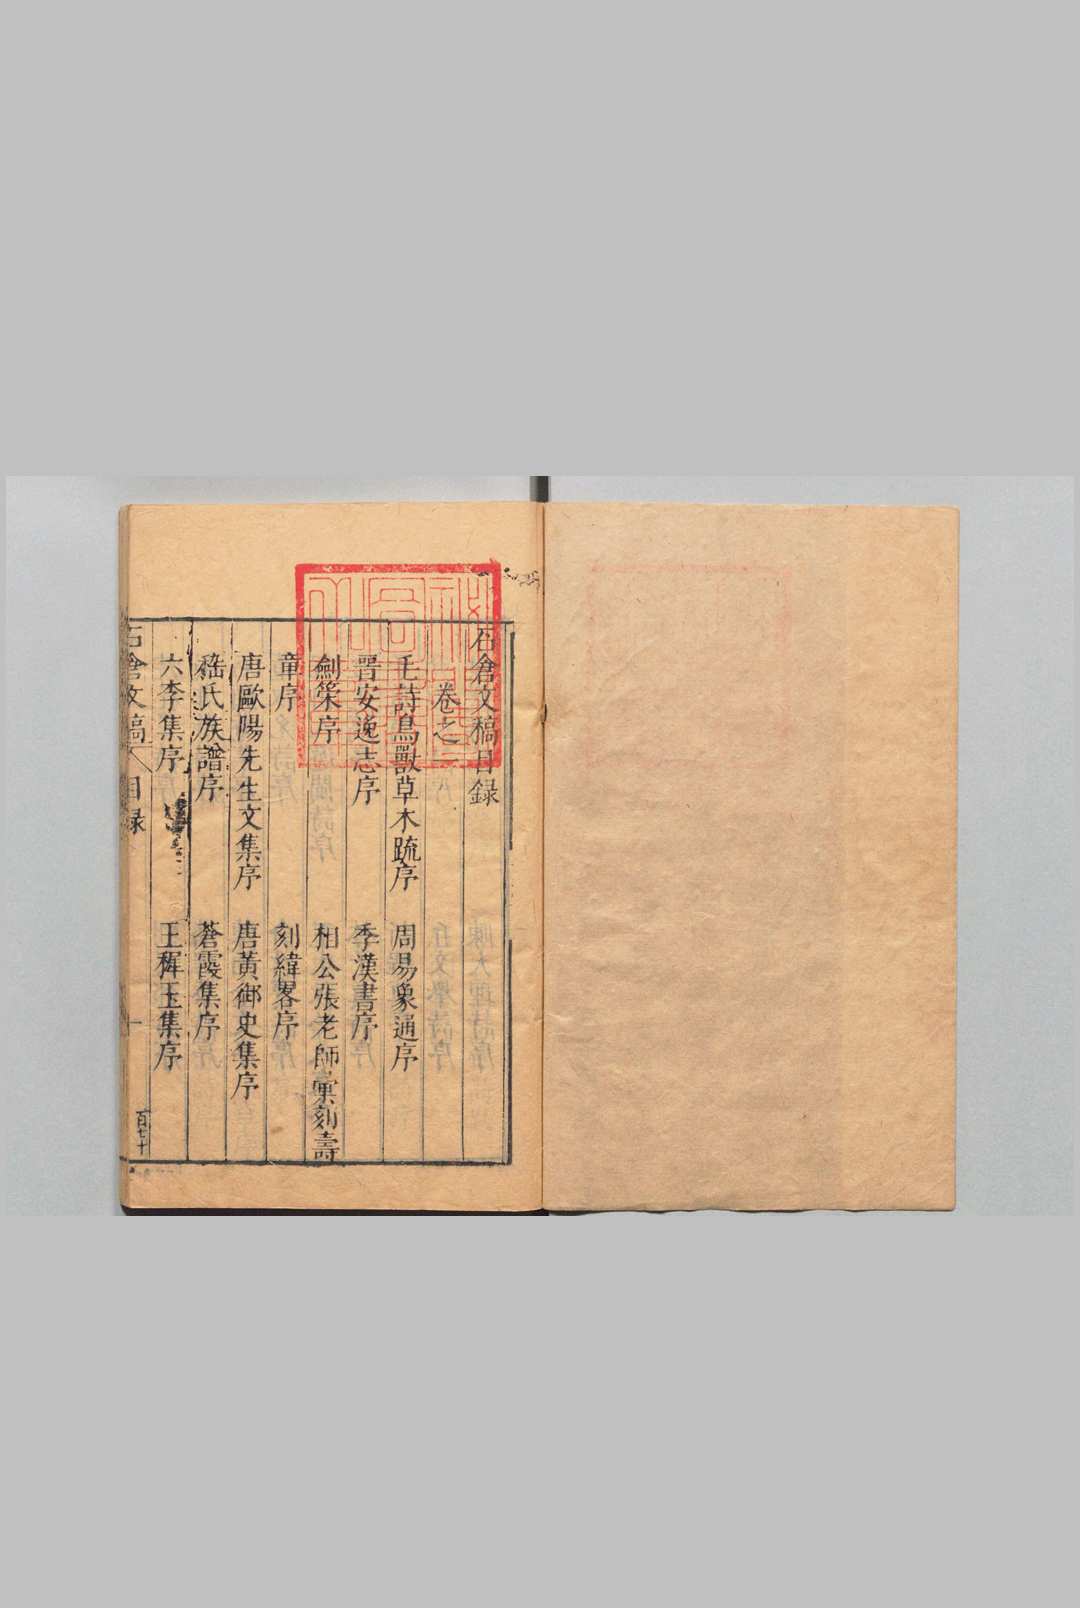 石倉文稿目錄
卷之一
毛詩鳥獸草木疏序
周易象通序
晉安逸志序
季漢書序
劍筞序
相公張老師彙刻壽
章序
刻緯畧序
唐歐陽先生文集序
唐黃御史集序
嵇氏族譜序
蒼霞集序
六李集序
王稺玉集序
石倉文稿 目錄
一
百七十